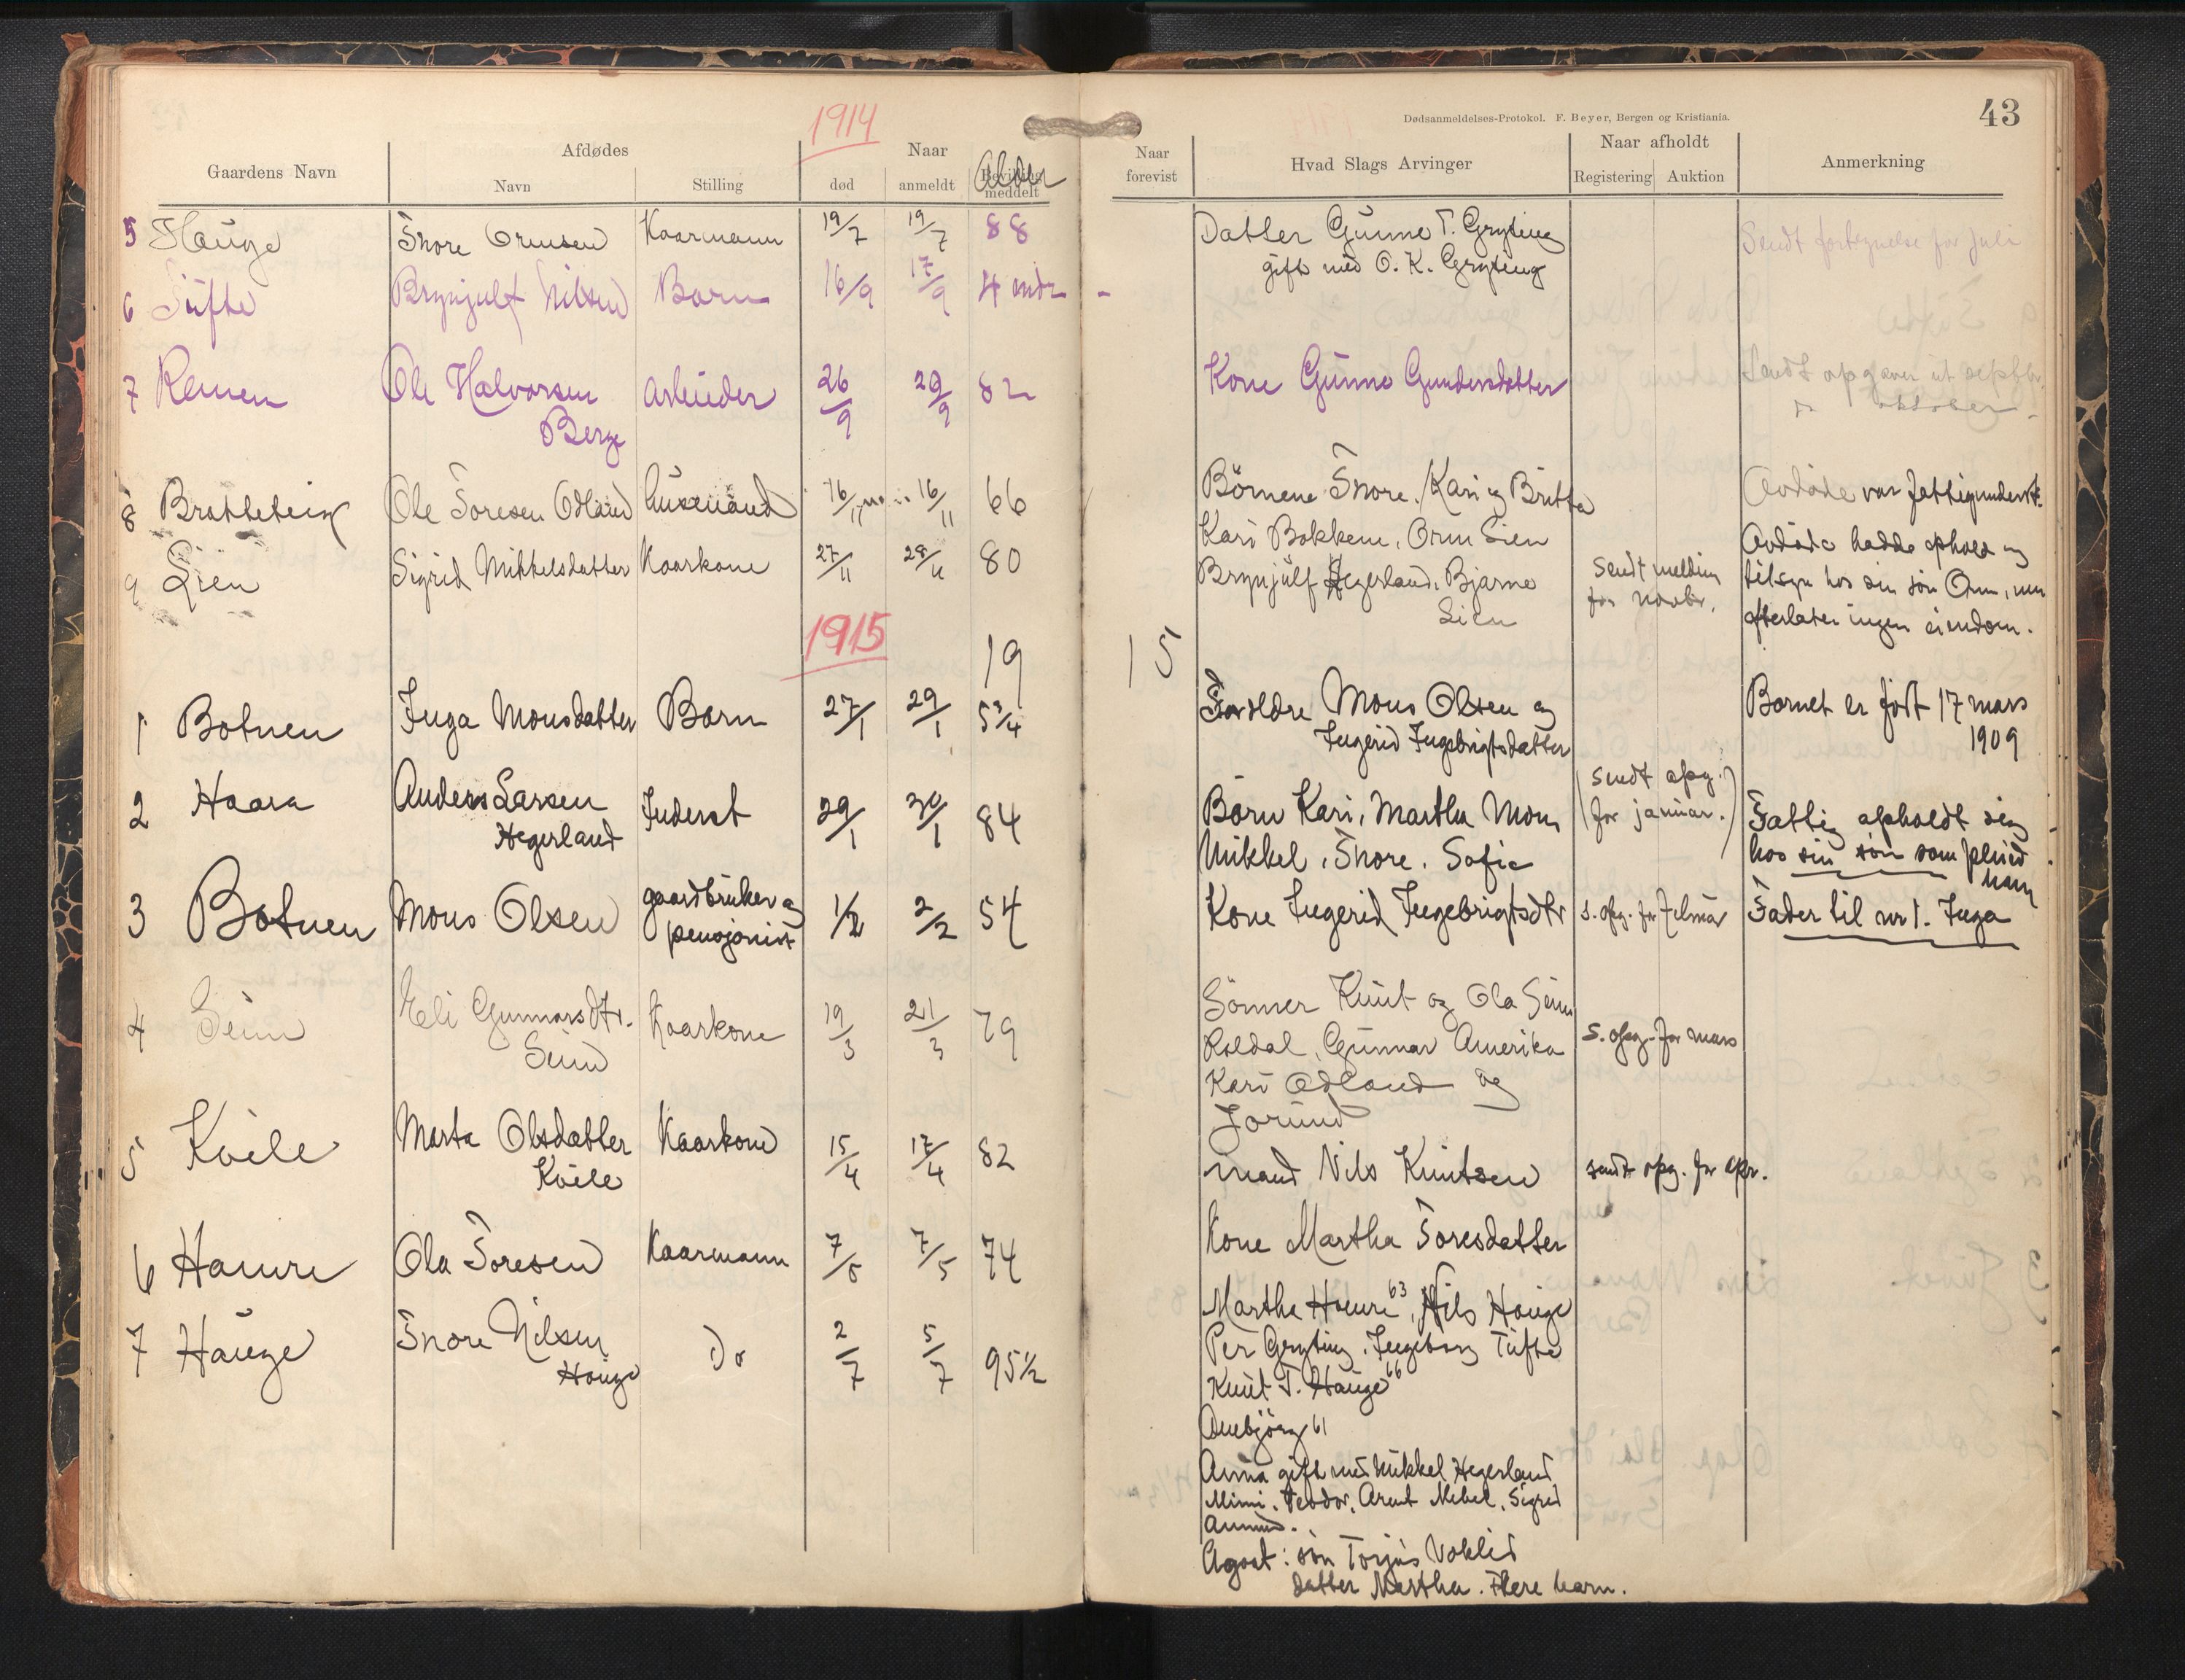 1914
Dødsanmeldelses-Protokol. F. Beyer, Bergen og Kristiania.
43
Gaardens Navn
Afdødes
Navn
Stilling
Naar
død
anmeldt
Bevilling meddelt
Alder
Naar forevist
Hvad Slags Arvinger
Naar afholdt
Registering
Auktion
Anmerkning
5 Hauge Tore Ormsen Kaarmann 19/7 19/7 88 Datter Gunne T. Gryting
gift med O. K. Gryting
Sendt fortegnelse for juli
6 Tufte Brynjulf Nilsen Barn 16/9 17/9 4 mdr -
7 Remen Ole Halvorsen Arbeider 26/9 29/9 82 Kone Gunne Gundersdatter
Berge
Sendt opgaver ut septbr.
do oktober -
8 Bratteteig Ole Toresen Odland husmand 16/11 16/11 66 Börnene Tore, Kari og Britta
Avdöde var fattigunderst.
9 Lien Sigrid Mikkelsdatter Kaarkone 27/11 28/11 80 Kari Bakkene, Orm Lien
Brynjulf Hegerland, Bjarne
Lien
Sendt melding
for novbr.
Avdöde hadde ophold og
tilsyn hos sin sön Orm, men
efterlater ingen eiendom.
1915
19
15
1 Botnen Inga Monsdatter Barn 27/1 29/1 5 3/4 Forældre Mons Olsen og
Ingerid Ingebrigtsdatter
Barnet er födt 17 mars
1909
2 Haara Anders Larsen Inderst 29/1 30/1 84 Barn Kari, Martha Mons
Hegerland
Mikkel, Tore, Sofie
(Sendt opg.
for januar.)
Fattig opholdt seg
hos sin sön som pleied
ham
3 Botnen Mons Olsen gaardbruker og
pensjonist 1/2 2/2 54 Kone Ingerid Ingebrigtsdtr s. opg. for februar Fader til nr 1. Inga
4 Seim Eli Gunnarsdtr. Kaarkone 19/3 21/3 79 Sönner Knut og Ola Seim
Seim
Röldal, Gunnar Amerika
Kari Odland og
Jorund
s. opg. for mars
5 Kvile Marta Olsdatter Kaarkone 15/4 17/4 82 mand Nils Knutsen sendt opg. for apr.
Kvile
6 Hamre Ola Toresen Kaarmann 7/5 7/5 74 Kone Martha Toresdatter
7 Hauge Tore Nilsen Do 2/7 5/7 95 1/2 Martha Hamre 63, Nils Hauge
Hauge
Per Gryting, Ingeborg Tufte
Knut T. Hauge 66
Anbjörg 61
Anna gift med Mikkel Hegerland
Mimi, Teodor, Arent Mikal, Sigrid
Agoat: sön Torjus Voklid
datter Martha. Flere barn.